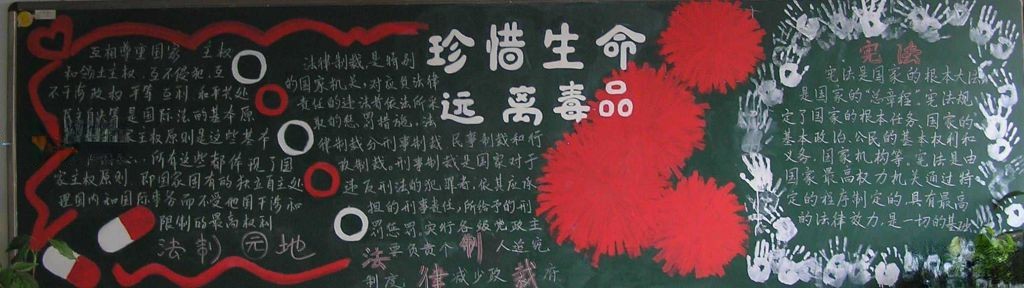 互相尊重国家 主权
和领土主权、互不侵犯、互
不干涉内政、平等互利和平共处
是国际法的基本原
家主权原则是这些基本
所有这些都体现了国
家主权原则 即国家固有的独立自主处
理国内和国际事务而不受他国干涉和
限制的最高权利
法制园地
法律制裁是特别
的国家机关,对应负法律
责任的违法者依法所采
取的惩罚措施。法
律制裁分刑事制裁 民事制裁和行
政制裁。刑事制裁是国家对于
违反刑法的犯罪者,依其应承
担的刑事责任,所给予的刑
罚惩罚。实行各级党政主
要负责个 人追究
制度 减少及
法律制裁
珍惜生命
远离毒品
宪法
宪法是国家的根本大法
是国家的“总章程”。宪法规
定了国家的根本任务、国家的
基本政治、公民的基本权利和
义务、国家机构等。宪法是由
国家最高权力机关通过特
定的程序制定的,具有最高
的法律效力,是一切的基法